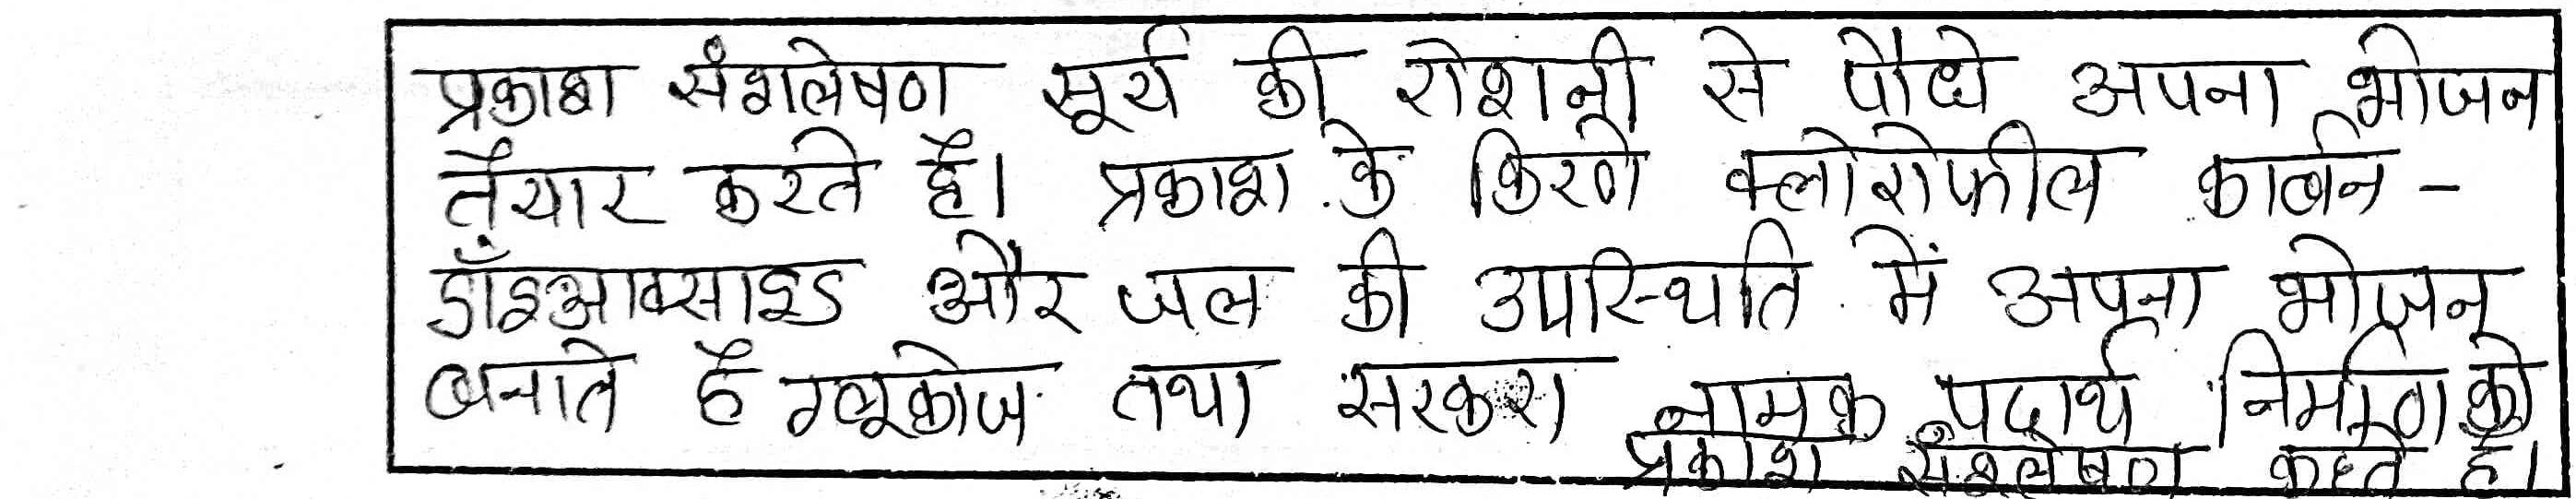 प्रकाश संशलेषण सूर्य की रोशनी से पौधे अपना भोजन
तैयार करते है। प्रकाश के किरणे क्लोरोफील कार्बन -
डाँइआक्साइड और जल की उपस्थिति में अपना भोजन
बनाते है ग्लूकोज तथा सरकरा नामक पदार्थ निर्माण को
प्रकाश संश्लेषण कहते है।